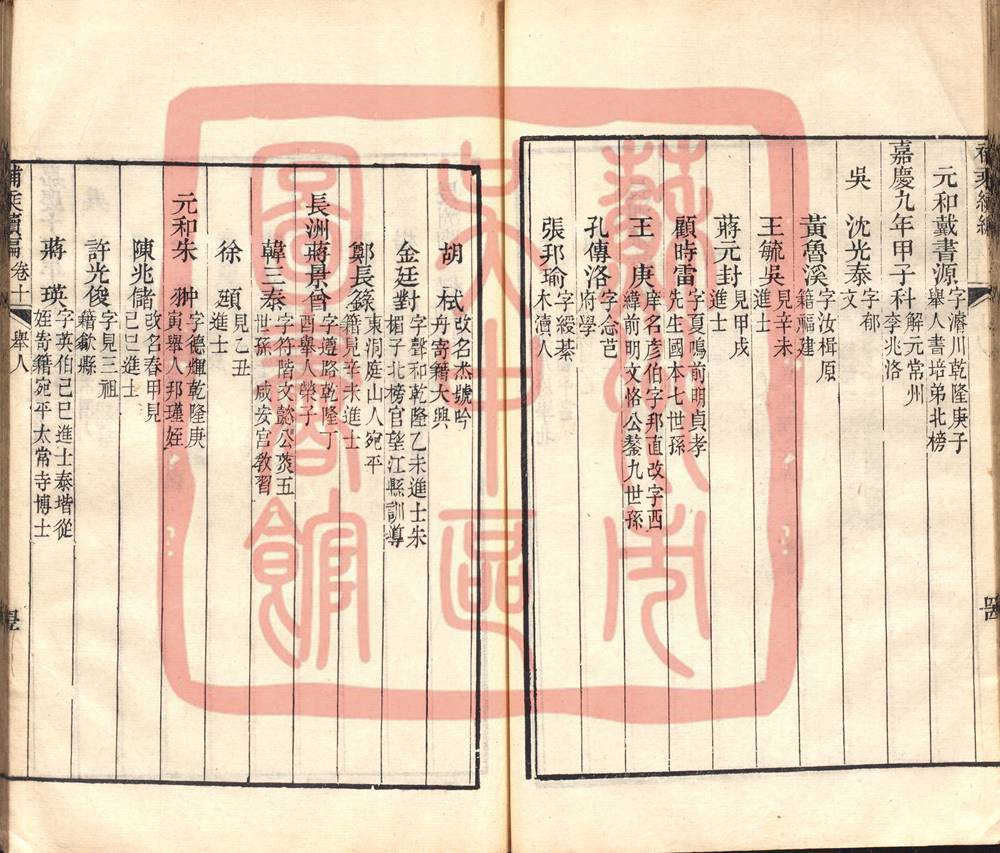 元和戴書源 字濬川乾隆庚子
舉人書培弟北榜
嘉慶九年甲子科 解元常州
李兆洛
吳 沈光泰 字郁
文
黃魯溪 字汝楫原
籍福建
王毓吳 見辛未
進士
蔣元封 見甲戌
進士
顧時雷 字夏鳴前明貞孝
先生國本七世孫
王 庚 庠名彥伯字邦直改字西
緯前明文恪公鏊九世孫
孔傳洛 字念芑
府學
張邦瑜 字綬綦
木瀆人
胡 栻 改名杰號吟
舟寄籍大興
金廷對 字聲和乾隆乙未進士朱
楣子北榜官望江縣訓導
鄭長籙 東洞庭山人宛平
籍見辛未進士
長洲蔣景曾 字遵路乾隆丁
酉舉人榮子
韓三泰 字符階文懿公菼五
世孫 咸安宮教習
徐 頲 見乙丑
進士
元和朱 翀 字德輝乾隆庚
寅舉人邦瑾姪
陳兆儲 改名春甲見
己巳進士
許光俊 字見三祖
籍歙縣
蔣 瑛 字英伯己巳進士泰堦從
姪寄籍宛平太常寺博士
補乘續編 卷十 舉人